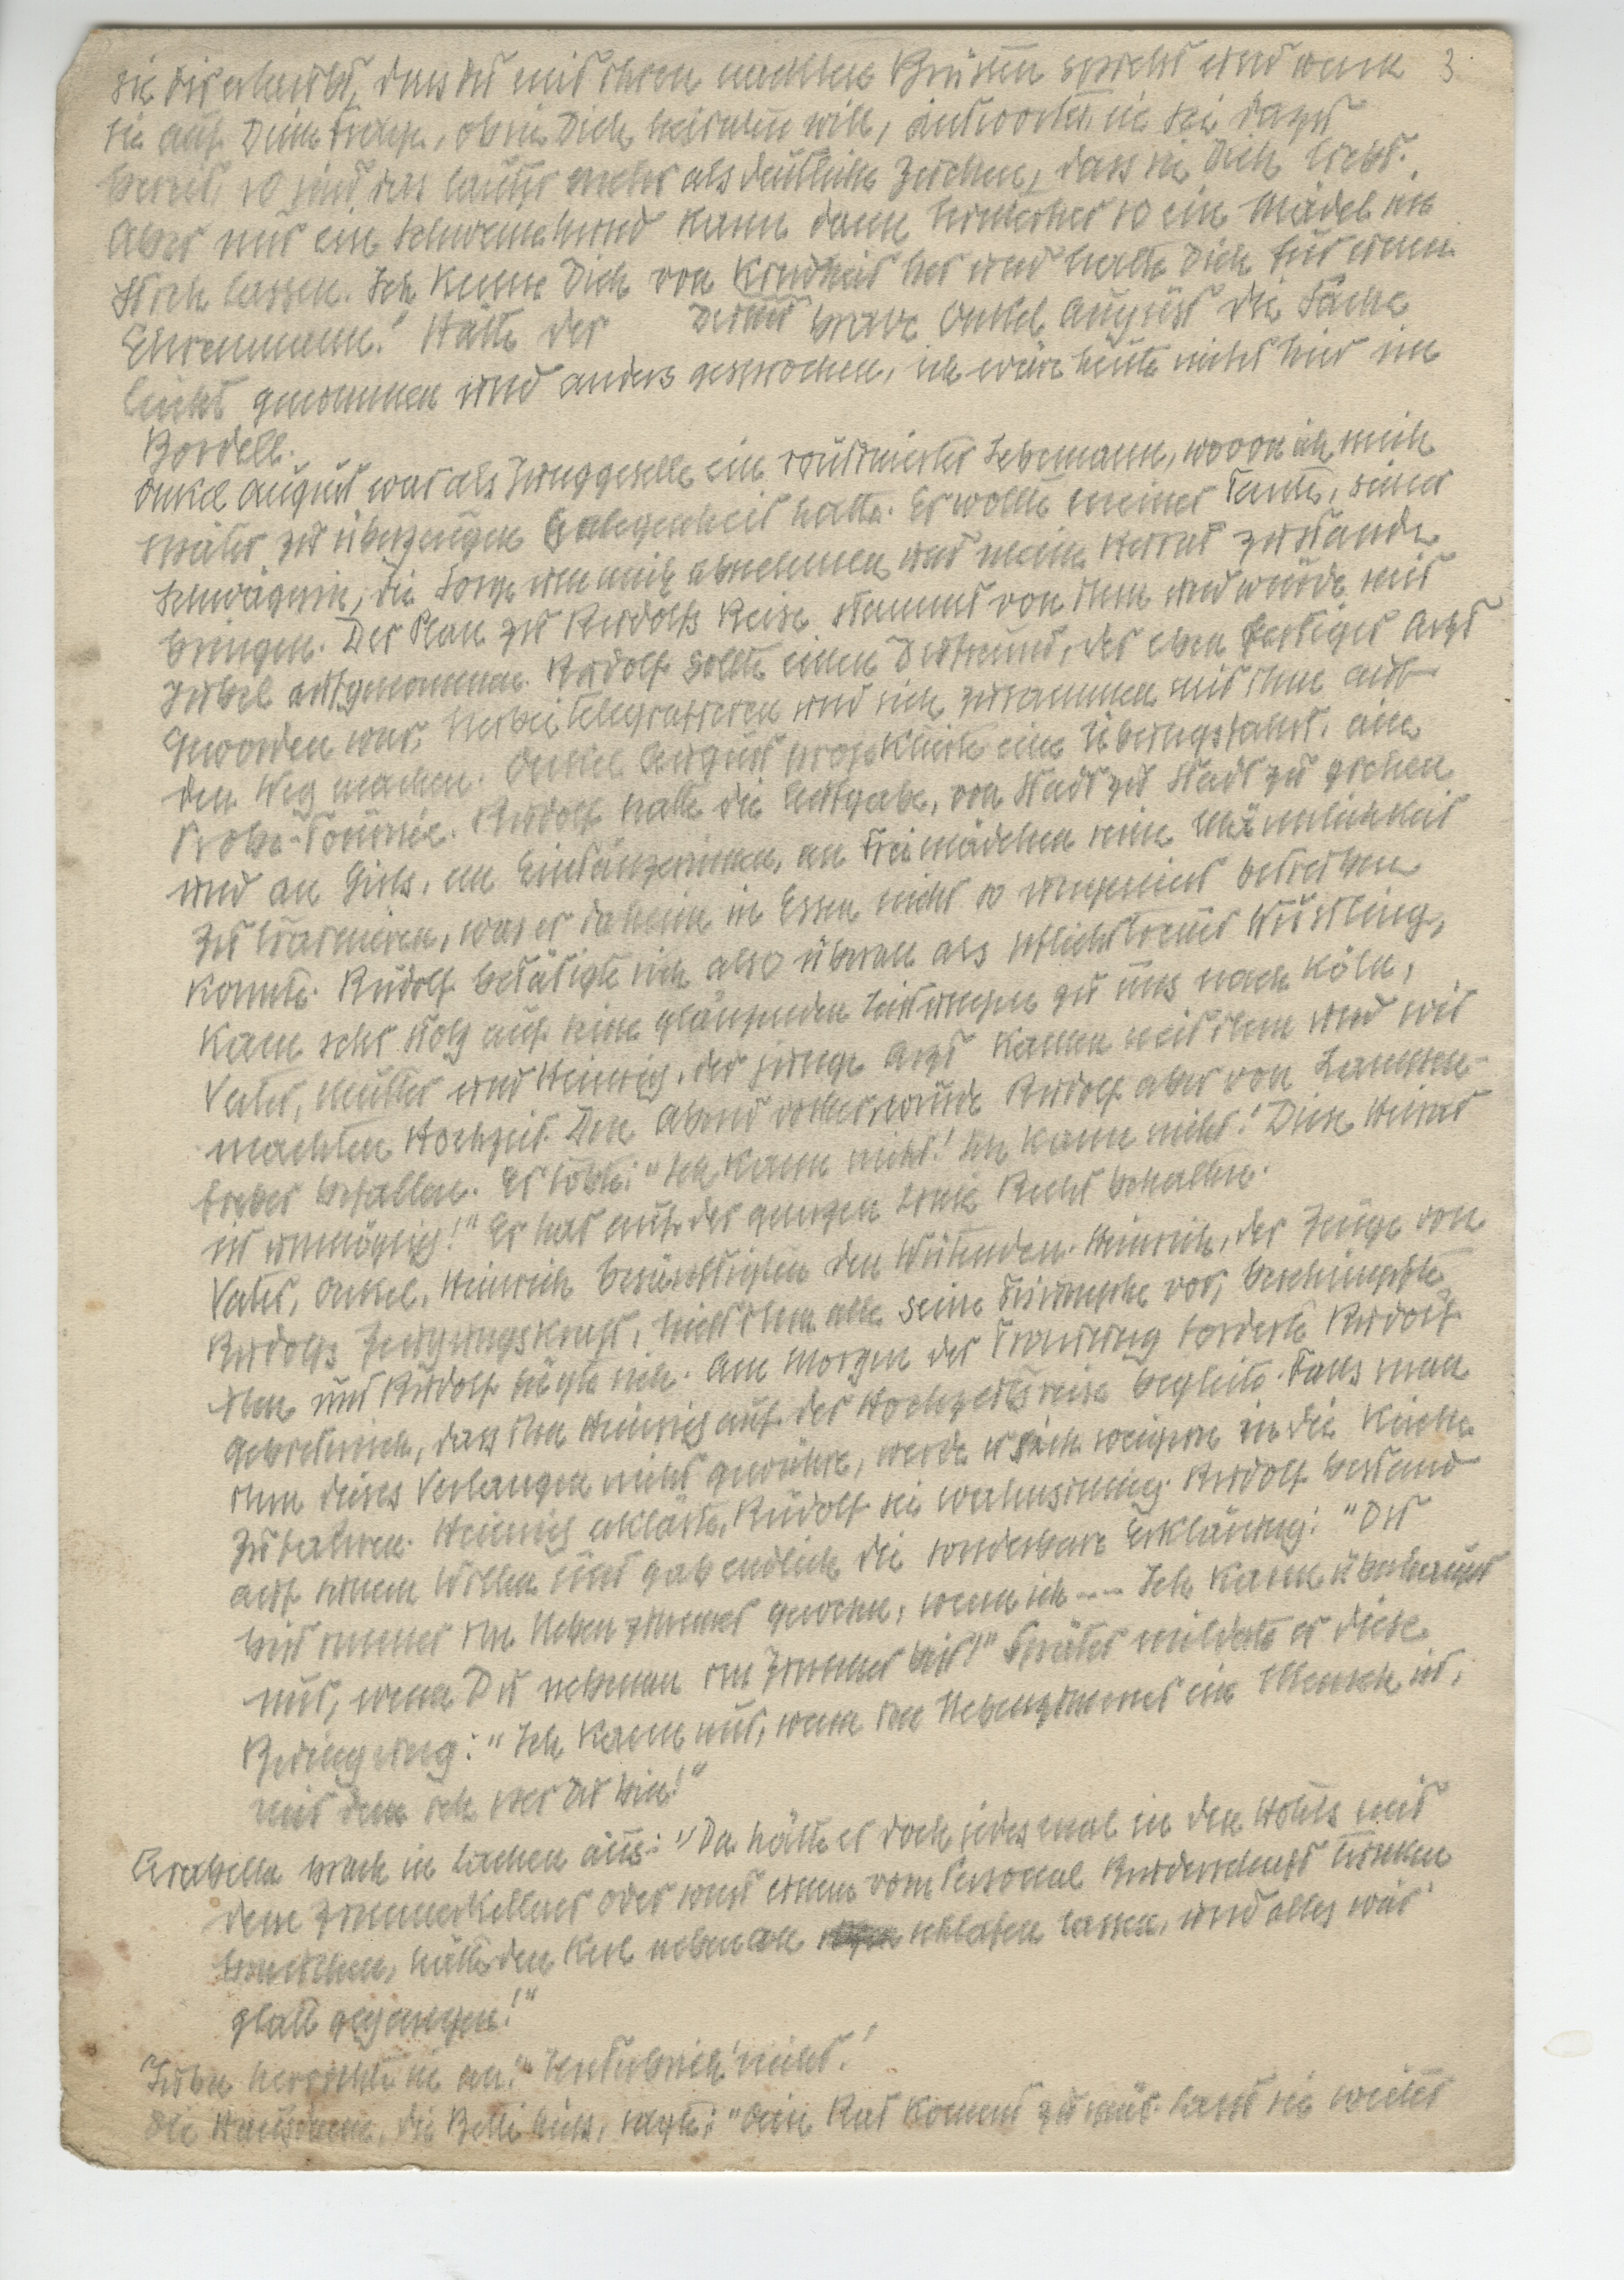 3
sie dir erlaubt, dass du mit ihren nackten Brüsten spielst und wenn
sie auf Deine Frage, ob sie Dich heiraten will, antwortet, sie sei dazu
bereit, so sind das lauter mehr als deutliche Zeichen, dass sie Dich liebt.
Aber nur ein Schweinehund kann dann hinterher so ein Mädel im
Stich lassen. Ich kenne Dich von Kindheit her und halte Dich für einen
Ehrenmann!" Hätte der brave Onkel August die Sache
leicht genommen und anders gesprochen, ich wäre heute nicht hier im
Bordell.
Onkel August war als Junggeselle ein routinierter Lebemann, wovon ich mich
später zu überzeugen Gelegenheit hatte. Er wollte meiner Tante, seiner
Schwägerin, die Sorge um mich abnehmen und meine Heirat zustande
bringen. Der Plan zu Rudolfs Reise stammt von ihm und wurde mit
Jubel aufgenommen. Rudolf sollte einen Duzfreund, der eben fertiger Arzt
geworden war, herbei telegrafieren und sich zusammen mit ihm auf
den Weg machen. Onkel August projektierte eine Übungsfahrt, eine
Probe-Tournée. Rudolf hatte die Aufgabe, von Stadt zu Stadt zu gehen
und an Girls, an Eintänzerinnen, an Freimädchen seine Männlichkeit
zu trainieren, was er daheim in Essen nicht so ungeniert betreiben
konnte. Rudolf betätigte sich also überall als pflichttreuer Wüstling,
kam sehr stolz auf seine glänzenden Leistungen zu uns nach Köln,
Vater, Mutter und Heinrich, der junge Arzt kamen mit ihm und wir
machten Hochzeit. Den Abend vorher wurde Rudolf aber von Lampen-
fieber befallen. Er tobte: "Ich kann nicht! Ich kann nicht! Diese Heirat
ist unmöglich!" Er hat auf der ganzen Linie Recht behalten.
Vater, Onkel, Heinrich besänftigten den Wütenden. Heinrich, der Zeuge von
Rudolfs Zeugungskraft, hielt ihm alle seine Triumphe vor, beschimpfte
ihn und Rudolf fügte sich. Am Morgen der Trauung forderte Rudolf
gebieterisch, dass ihn Heinrich auf der Hochzeitsreise begleite. Falls man
ihm dieses Verlangen nicht gewähre, werde er sich weigern in die Kirche
zu fahren. Heinrich erklärte, Rudolf sei wahnsinnig. Rudolf bestand
auf seinem Willen und gab endlich die sonderbare Erklärung: "Du
bist immer im Nebenzimmer gewesen, wenn ich --- Ich kann überhaupt
nur, wenn Du nebenan im Zimmer bist!" Später milderte er diese
Bedingung: "Ich kann nur, wenn im Nebenzimmer ein Mensch ist,
mit dem ich per Du bin!"
Arabella brach in Lachen aus: "Da hätte er doch jedesmal in den Hotels mit
dem Zimmerkellner oder sonst einem vom Personal Bruderschaft trinken
brauchen, hätte den Kerl nebenan schlafen lassen, und alles wär'
glatt gegangen!"
herrschte sie an: "Unterbrich nicht!"
Die Hausdame, die Betti hiess, sagte: "Dein Rat kommt zu spät. Lasst sie weiter